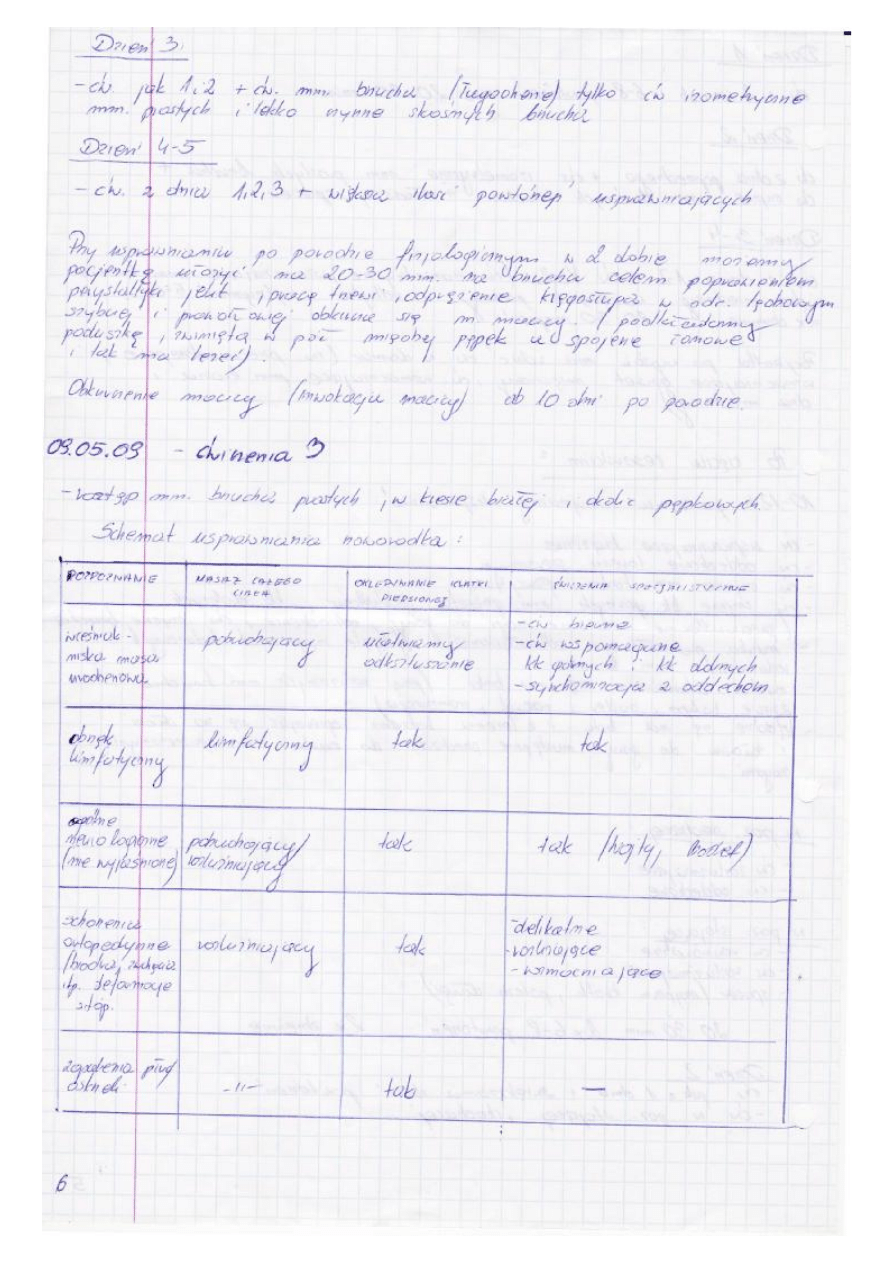 Dzień 3.
- ćw. jak 1 i 2 + ćw. mm. brzucha (Tułgochene) tylko ćw izometryczne
mm. prostych i lekko czynne skośnych brzucha
Dzień 4-5
- ćw. z dnia 1,2,3 + większa ilość powtórzeń usprawniających
Przy usprawnianiu po porodzie fizjologicznym w 2 dobie możemy
pacjentkę ułożyć na 20-30 min. na brzuchu celem poprawienia
perystaltyki jelit, pracę trzewi, odprężenie kręgosłupa w odc. lędźwiowym
szybciej i prawidłowej obkurcza się m. macicy. / podkładamy
poduszkę, zwiniętą w pół między pępek a spojenie łonowe
i tak ma leżeć).
Obkurczenie macicy (inwolucja macicy) do 10 dni po porodzie.
09.05.09 - ćwiczenia 3
- rozstęp mm. brzucha prostych, w kresie białej i okolic pępkowych.
Schemat usprawniania noworodka:
ROZPOZNANIE MASAŻ CAŁEGO CIAŁA OKLEPYWANIE KLATKI PIERSIOWEJ ĆWICZENIA SPECJALISTYCZNE
wcześniak - niska masa urodzeniowa
pobudzający
ułatwiamy odksztuszanie
- ćw. bierne
- ćw wspomagane
kk górnych i kk dolnych
- synchronizacja z oddechem
obrzęk limfatyczny
limfatyczny
tak
tak
neurologiczne (nie wyjaśnione)
pobudzający/ rozluźniający
tak
tak (Vojty, Bobat)
schorzenia ortopedyczne
(biodra, zwichnięcia itp. deformacje stóp.
rozluźniający
tak
- delikatne
- rozluźniające
- wzmacniające
zagadnienia płuc
-"-
tak
—
6